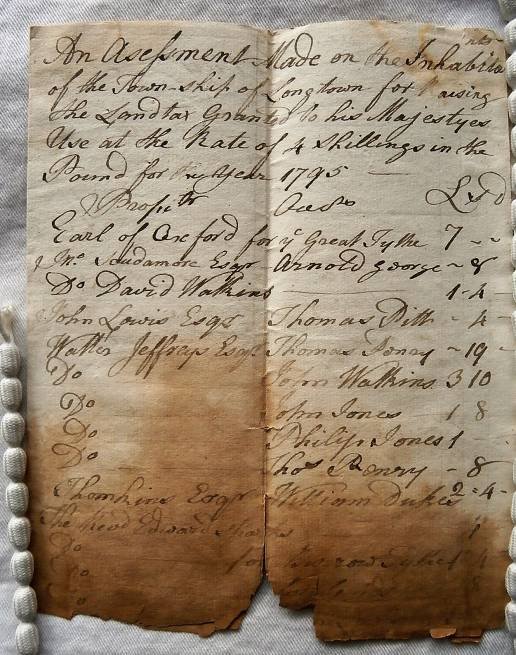 An Asessment Made on the Inhabita nts
of the Town-ship of Longtown for Raising
the Landtax Granted to his Majestyes
Use at the Rate of 4 Shillings in the
Pound for the Year 1795
L s d
Earl of Oxford for ye Great Tythe 7 - -
Jno. Scudamore Esqr Arnold George - 8
Do David Watkins 1 - 4 -
John Lewis Esqr Thomas Pitt - 4 -
Walter Jeffreys Esqr Thomas Penry - 19 -
Do John Watkins 3 10
Do John Jones 1 8
Do Philip Jones 1 -
Do Thos Penry - 8
Thomkins Esqr William Dukes 2 - 4 -
The Revd Edward 1
Do for
Do
Do